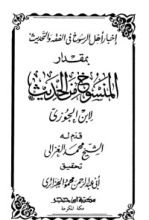 إخبار أهل الرسوخ في الفقه والتحديث
بمقدار
المنسوخ من الحديث
لابن الجوزي
قدم له
الشيخ محمد الغزالي
تحقيق
أبي عبد الرحمن محمود الجزائري
مكة المكرمة